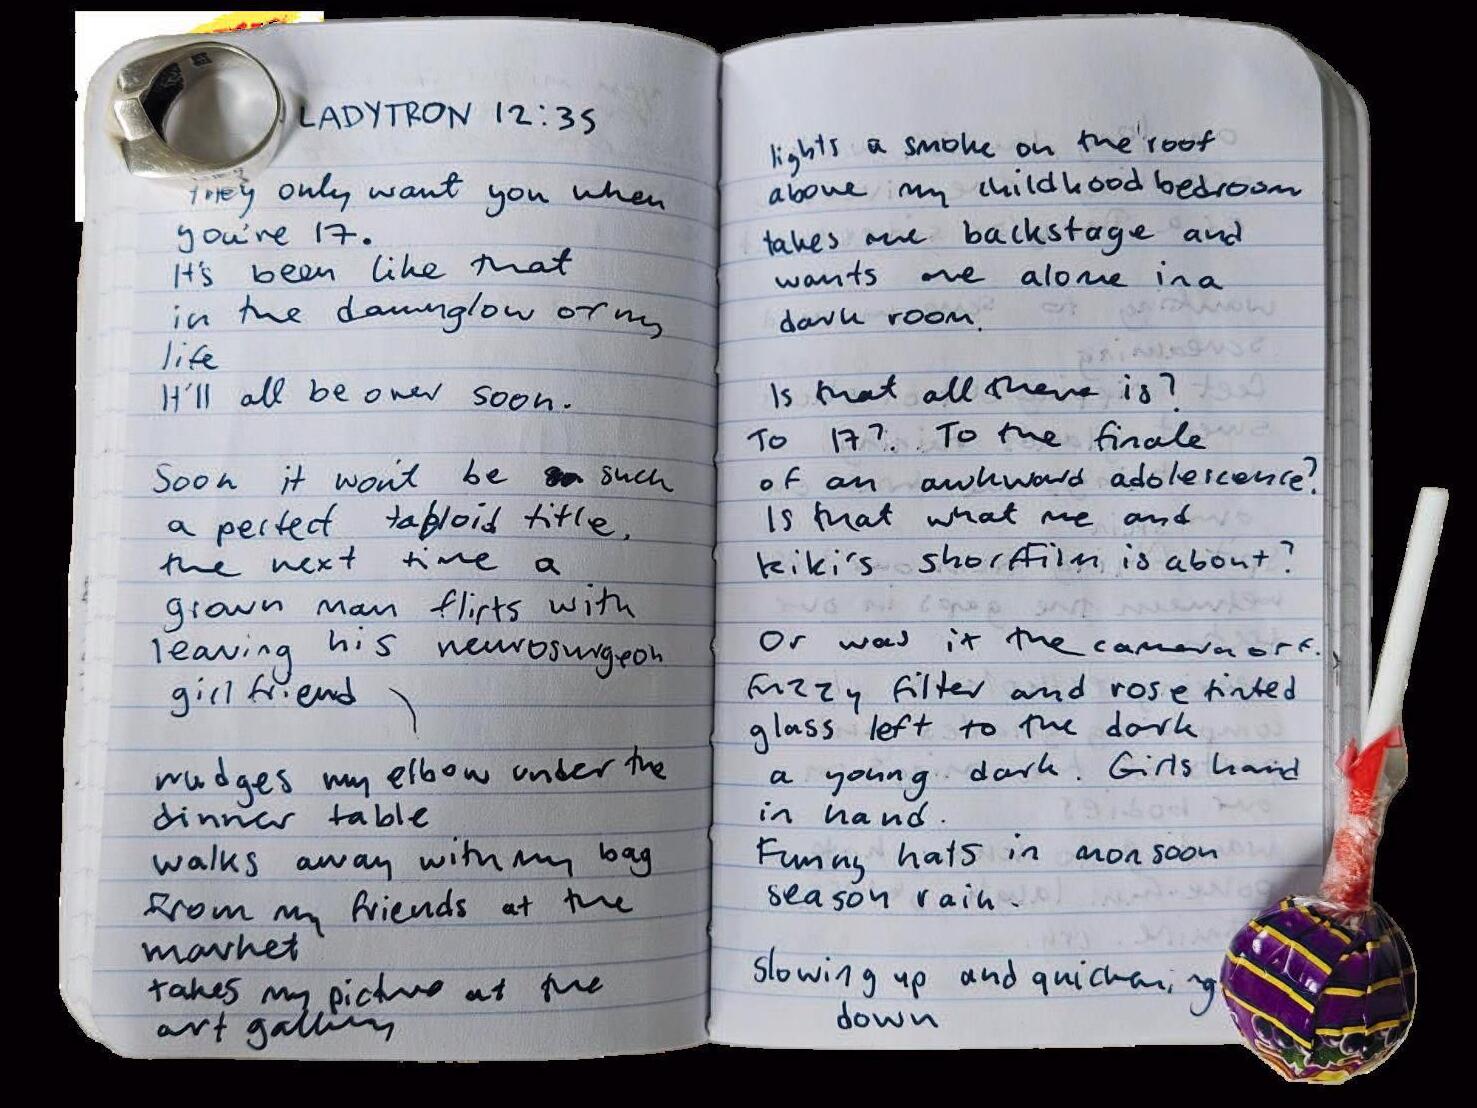 LADYTRON 12:35
They only want you when
you're 17.
It's been like that
in the dawnglow of my
life
It'll all be over soon.
Soon it won't be such
a perfect tabloid title,
the next time a
grown man flirts with
leaving his neurosurgeon
girlfriend
nudges my elbow under the
dinner table
walks away with my bag
From my friends at the
market
takes my picture at the
art gallery
lights a smoke on the roof
above my childhood bedroom
takes me backstage and
wants me alone in a
dark room.
Is that all there is?
To 17? To the finale
of an awkward adolescence?
Is that what me and
kiki's shortfilm is about?
Or was it the camera off.
Fuzzy filter and rose tinted
glass left to the dark
a young dark. Girls hand
in hand.
Funny hats in monsoon
season rain.
Slowing up and quickening
down